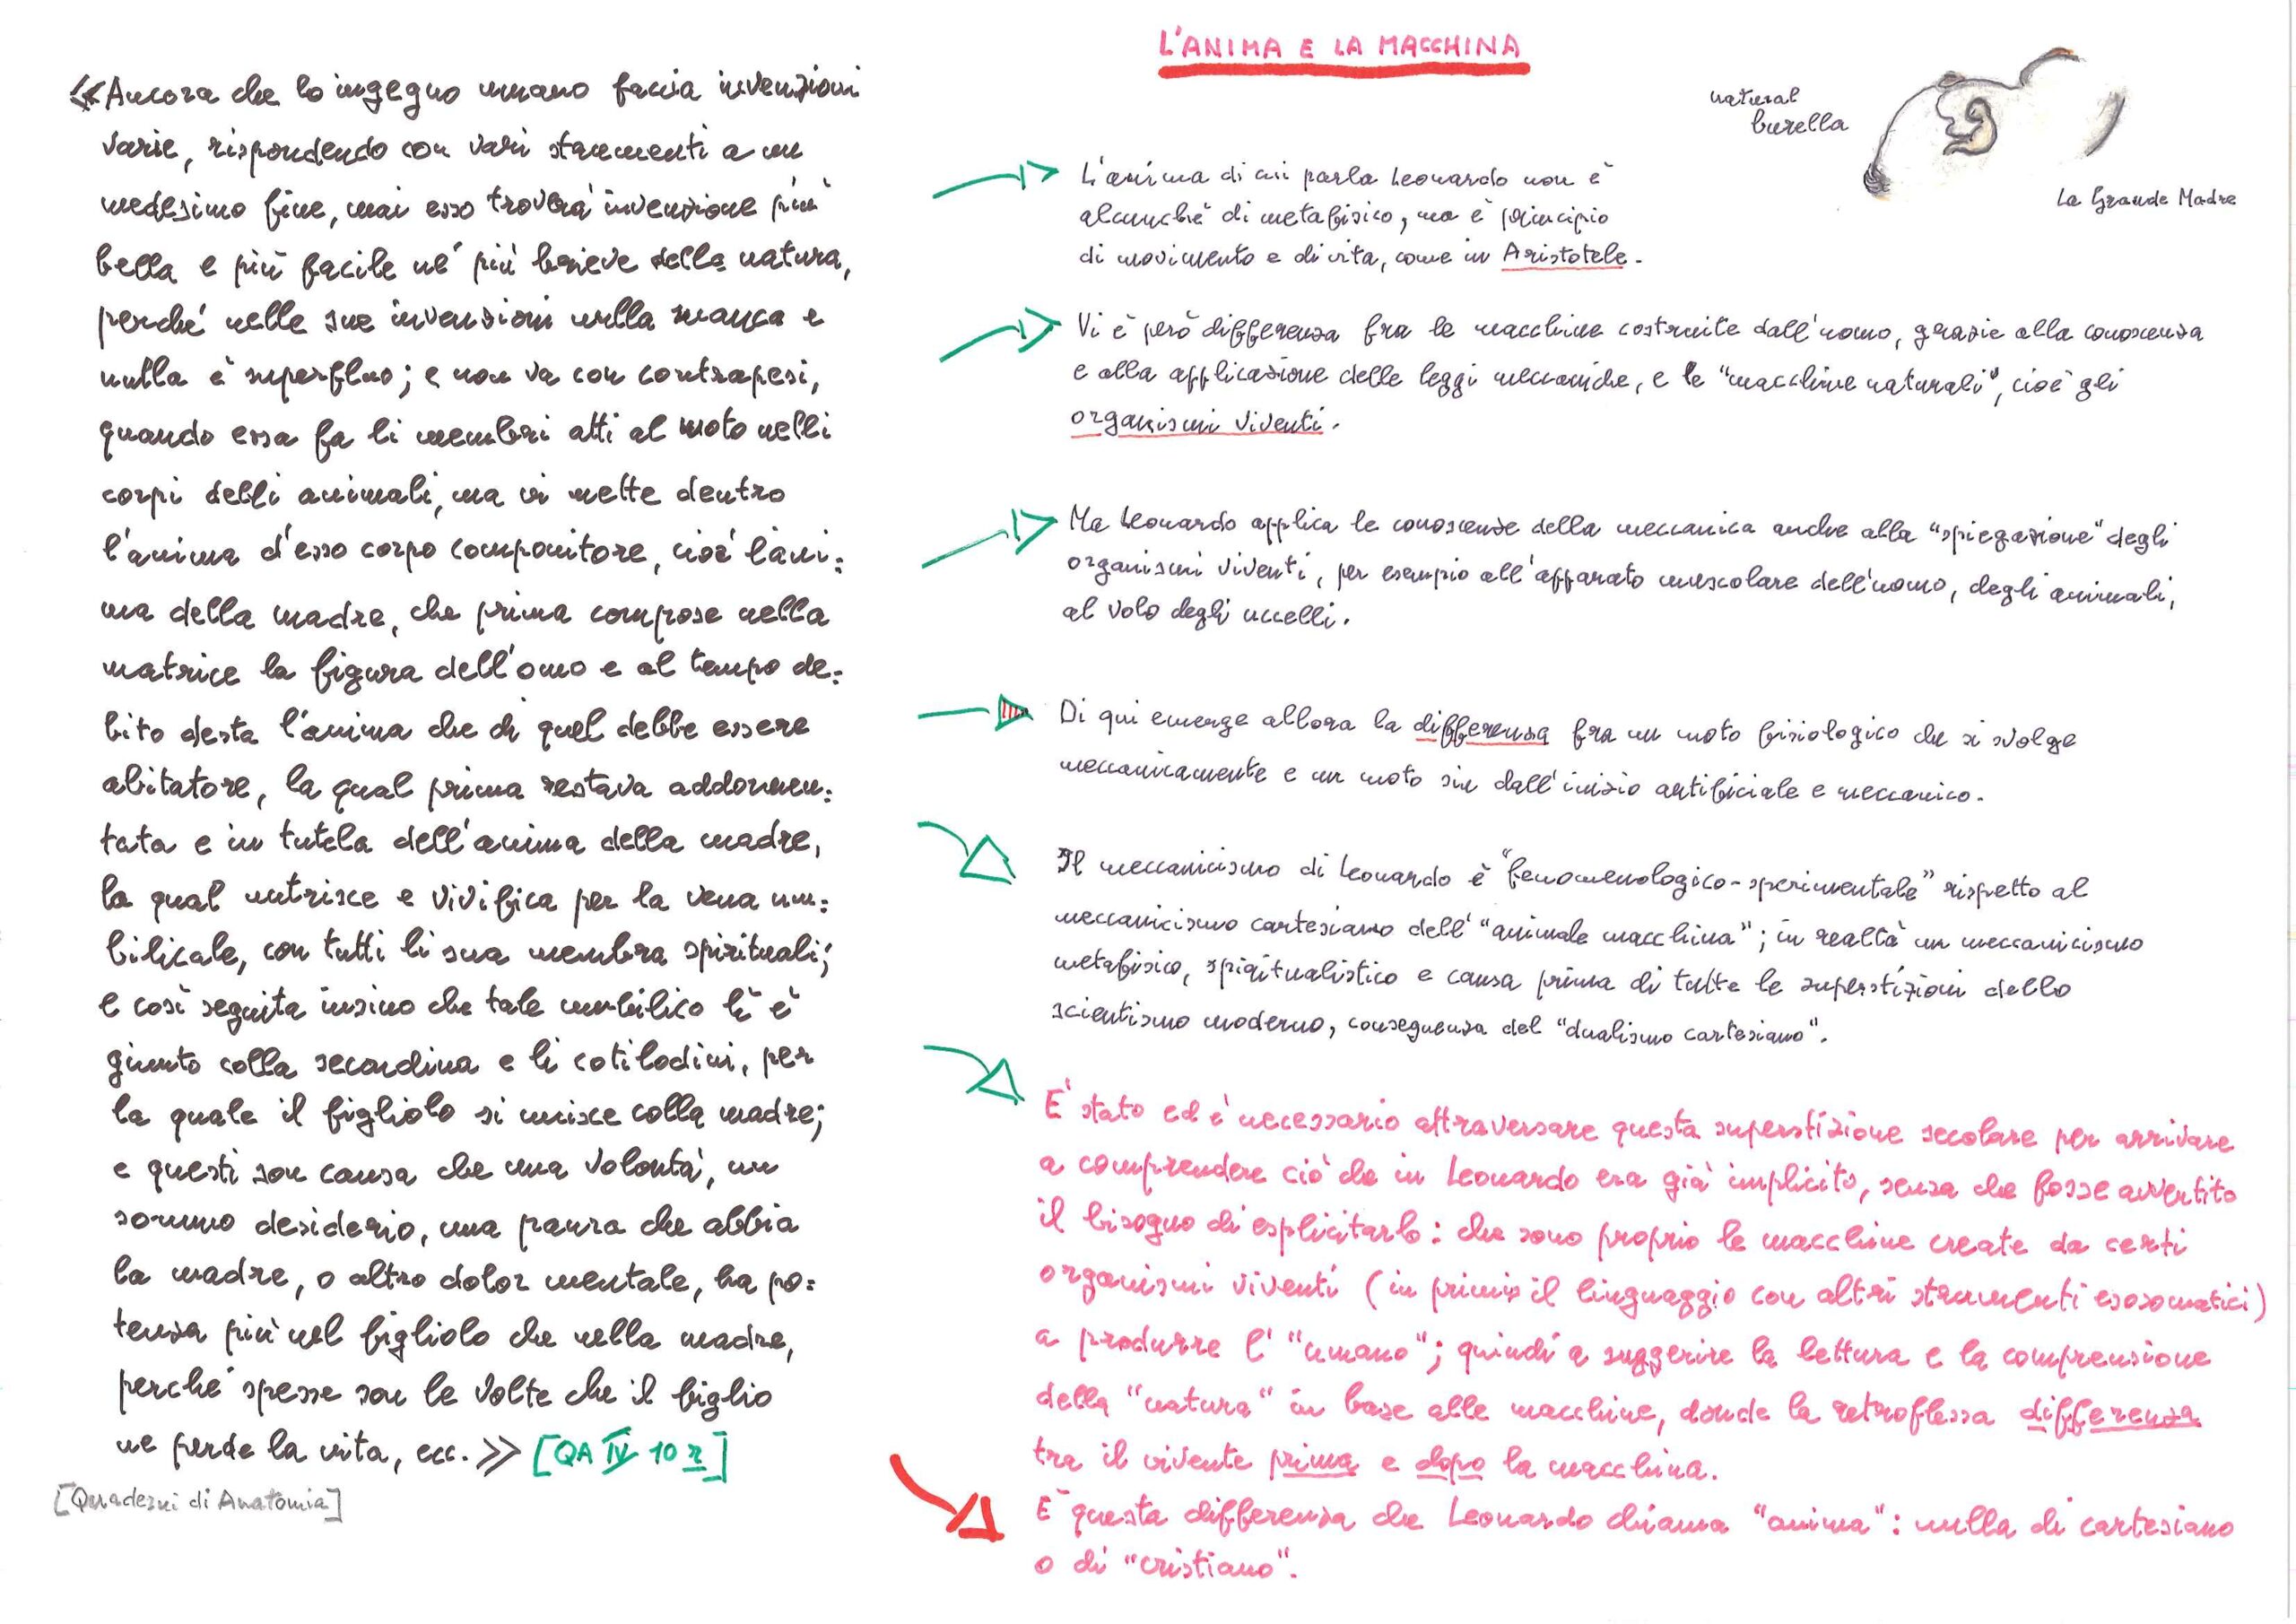 L'ANIMA E LA MACCHINA
«Ancora che lo ingegno umano faccia invenzioni
varie, rispondendo con vari strumenti a un
medesimo fine, mai esso troverà invenzione più
bella e più facile né più brieve della natura,
perché nelle sue invenzioni nulla manca e
nulla è superfluo; e non va con contrapesi,
quando essa fa li membri atti al moto nelli
corpi delli animali, ma vi mette dentro
l'anima d'esso corpo componitore, cioè l'ani=
ma della madre, che prima compose nella
matrice la figura dell'omo e al tempo de=
bito desta l'anima che di quel debbe essere
abitatore, la qual prima restava addormen=
tata e in tutela dell'anima della madre,
la qual nutrisce e vivifica per la vena um=
bilicale, con tutti li sua membra spirituali;
e così seguita insino che tale umbilico lì è
giunto colla secondina e li cotilodini, per
la quale il figliolo si unisce colla madre;
e questi son causa che una volontà, un
sommo desiderio, una paura che abbia
la madre, o altro dolor mentale, ha po=
tenza più nel figliolo che nella madre,
perché spesse son le volte che il figlio
ne perde la vita, ecc.» [QA IV 10 r]
[Quaderni di Anatomia]
natural
burella
La Grande Madre
L'anima di cui parla Leonardo non è
alcunché di metafisico, ma è principio
di movimento e di vita, come in Aristotele.
Vi è però differenza fra le macchine costruite dall'uomo, grazie alla conoscenza
e alla applicazione delle leggi meccaniche, e le "macchine naturali", cioè gli
organismi viventi.
Ma Leonardo applica le conoscenze della meccanica anche alla "spiegazione" degli
organismi viventi, per esempio all'apparato muscolare dell'uomo, degli animali,
al volo degli uccelli.
Di qui emerge allora la differenza fra un moto fisiologico che si svolge
meccanicamente e un moto sin dall'inizio artificiale e meccanico.
Il meccanicismo di Leonardo è "fenomenologico-sperimentale" rispetto al
meccanicismo cartesiano dell' "animale macchina"; in realtà un meccanicismo
metafisico, spiritualistico e causa prima di tutte le superstizioni dello
scientismo moderno, conseguenza del "dualismo cartesiano".
E' stato ed è necessario attraversare questa superstizione secolare per arrivare
a comprendere ciò che in Leonardo era già implicito, senza che fosse avvertito
il bisogno di esplicitarlo: che sono proprio le macchine create da certi
organismi viventi (in primis il linguaggio con altri strumenti esosomatici)
a produrre l' "umano"; quindi a suggerire la lettura e la comprensione
della "natura" in base alle macchine, donde la retroflessa differenza
tra il vivente prima e dopo la macchina.
E' questa differenza che Leonardo chiama "anima": nulla di cartesiano
o di "cristiano".